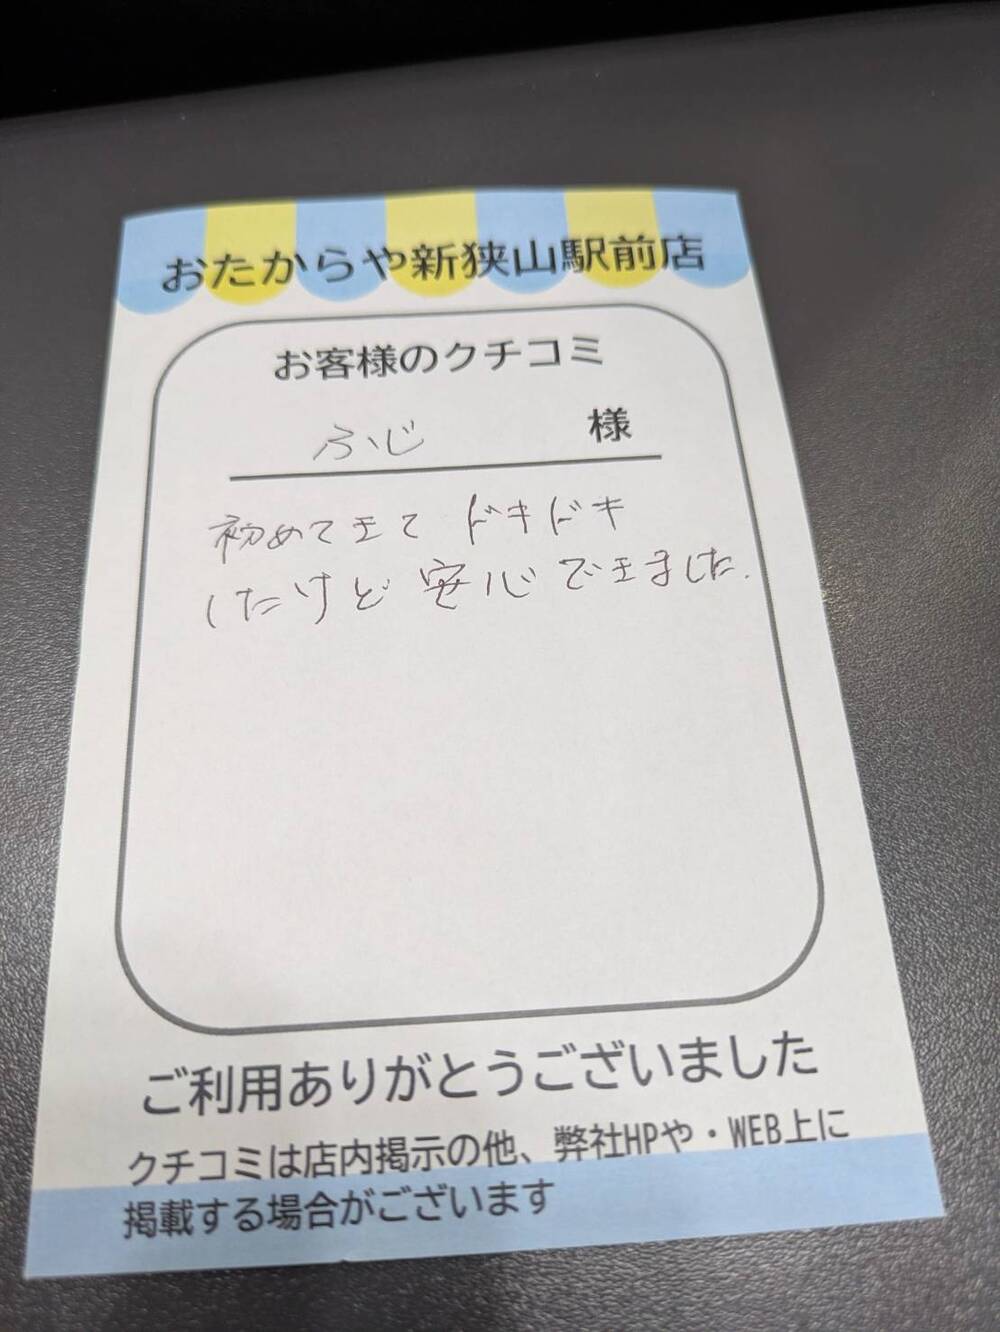 おたからや新狭山駅前店
お客様のクチコミ
ふじ 様
初めてきて ドキドキ
したけど 安心できました.
ご利用ありがとうございました
クチコミは店内掲示の他、弊社HPや・WEB上に
掲載する場合がございます